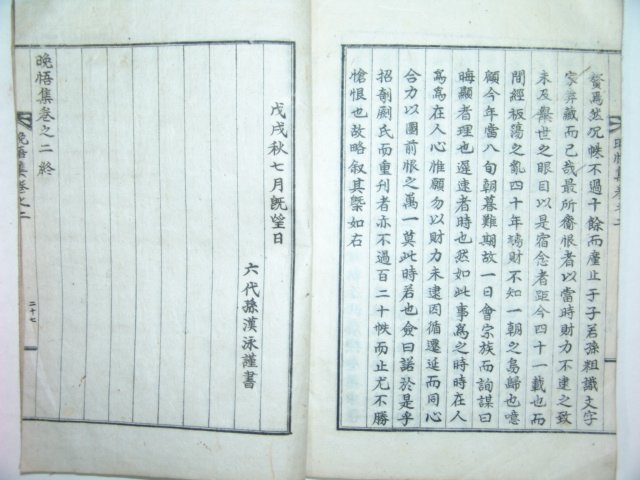 焉然沉帙不過十餘而塵止于子若孫粗識文字
家弆藏而已哉最所齎恨者以當時財力不逮之致
未及擧世之眼目以是宿念者距今四十一載也而
間經板蕩之亂四十年鳩財不知一朝之烏歸也噫
顧今年當八旬朝暮難期故一日會宗族而詢謀曰
晦顯者理也遲速者時也然如此事爲之時時在人
爲爲在人心惟願勿以財力未逮因循遷延而同心
合力以圖前恨之萬一莫此時若也僉曰諾於是乎
招剞劂氏而重刊者亦不過百二十帙而止尤不勝
愴恨也故略叙其槩如右
戊戌秋七月旣望日
六代孫漢泳謹書
晩悟集卷之二終
晩悟集卷之二
二十七